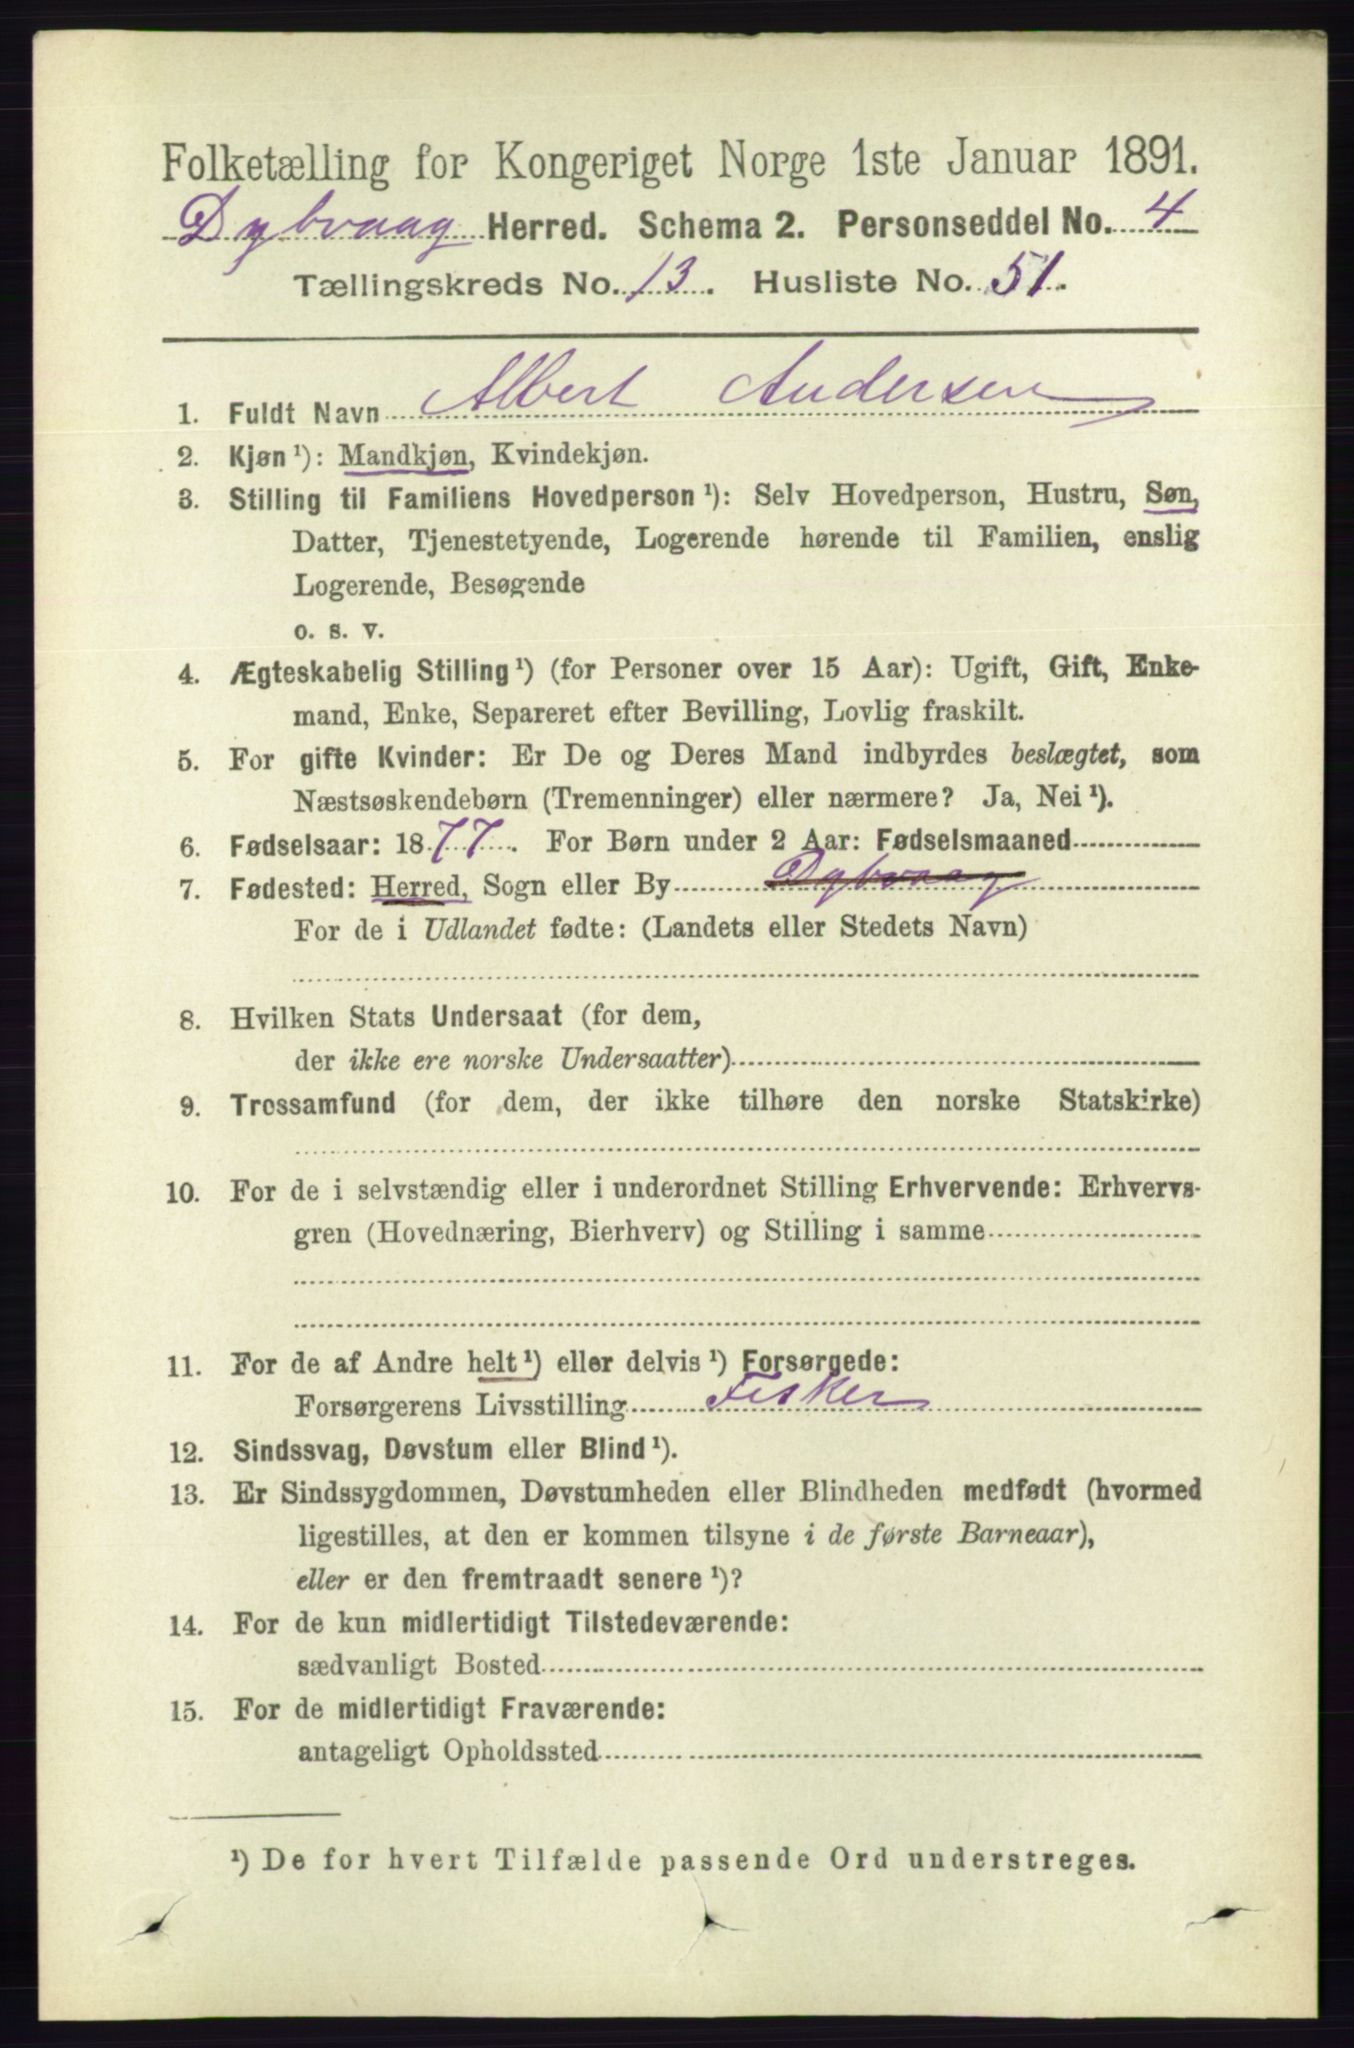 Folketælling for Kongeriget Norge 1ste Januar 1891.
Dybvaag Herred. Schema 2. Personseddel No. 4
Tællingskreds No. 13. Husliste No. 51.
1. Fuldt Navn Albert Andersen
2. Kjøn ¹): Mandkjøn, Kvindekjøn.
3. Stilling til Familiens Hovedperson ¹): Selv Hovedperson, Hustru, Søn,
Datter, Tjenestetyende, Logerende hørende til Familien, enslig
Logerende, Besøgende
o. s. v.
4. Ægteskabelig Stilling ¹) (for Personer over 15 Aar): Ugift, Gift, Enke-
mand, Enke, Separeret efter Bevilling, Lovlig fraskilt.
5. For gifte Kvinder: Er De og Deres Mand indbyrdes beslægtet, som
Næstsøskendebørn (Tremenninger) eller nærmere? Ja, Nei ¹).
6. Fødselsaar: 1877. For Børn under 2 Aar: Fødselsmaaned
7. Fødested: Herred, Sogn eller By Dybvaag
For de i Udlandet fødte: (Landets eller Stedets Navn)
8. Hvilken Stats Undersaat (for dem,
der ikke ere norske Undersaatter)
9. Trossamfund (for dem, der ikke tilhøre den norske Statskirke)
10. For de i selvstændig eller i underordnet Stilling Erhvervende: Erhvervs-
gren (Hovednæring, Bierhverv) og Stilling i samme
11. For de af Andre helt ¹) eller delvis ¹) Forsørgede:
Forsørgerens Livsstilling Fisker
12. Sindssvag, Døvstum eller Blind ¹).
13. Er Sindssygdommen, Døvstumheden eller Blindheden medfødt (hvormed
ligestilles, at den er kommen tilsyne i de første Barneaar),
eller er den fremtraadt senere ¹)?
14. For de kun midlertidigt Tilstedeværende:
sædvanligt Bosted
15. For de midlertidigt Fraværende:
antageligt Opholdssted
¹) De for hvert Tilfælde passende Ord understreges.